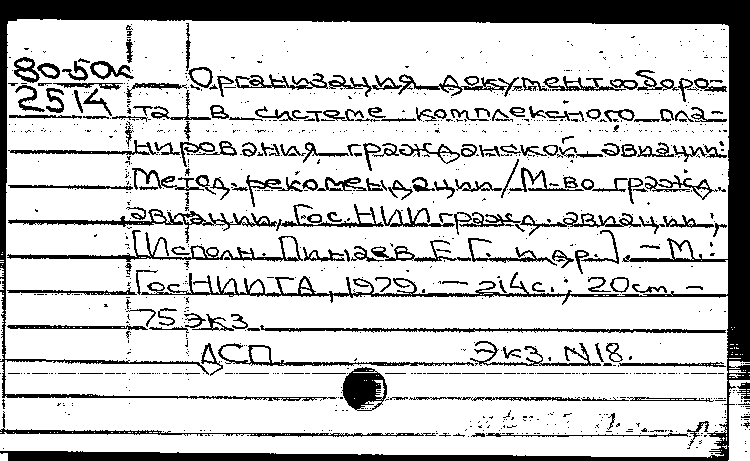 80-50к Организация документооборо-
2514 та в системе комплексного пла-
нирования гражданской авиации:
Метод. рекомендации / М-во гражд.
авиации, Гос. НИИ гражд. авиации;
[Исполн. Пинаев Е.Г. и др.]. - М.:
ГосНИИГА, 1979. - 214с.; 20см. -
75 экз.
ДСП. Экз. N18.